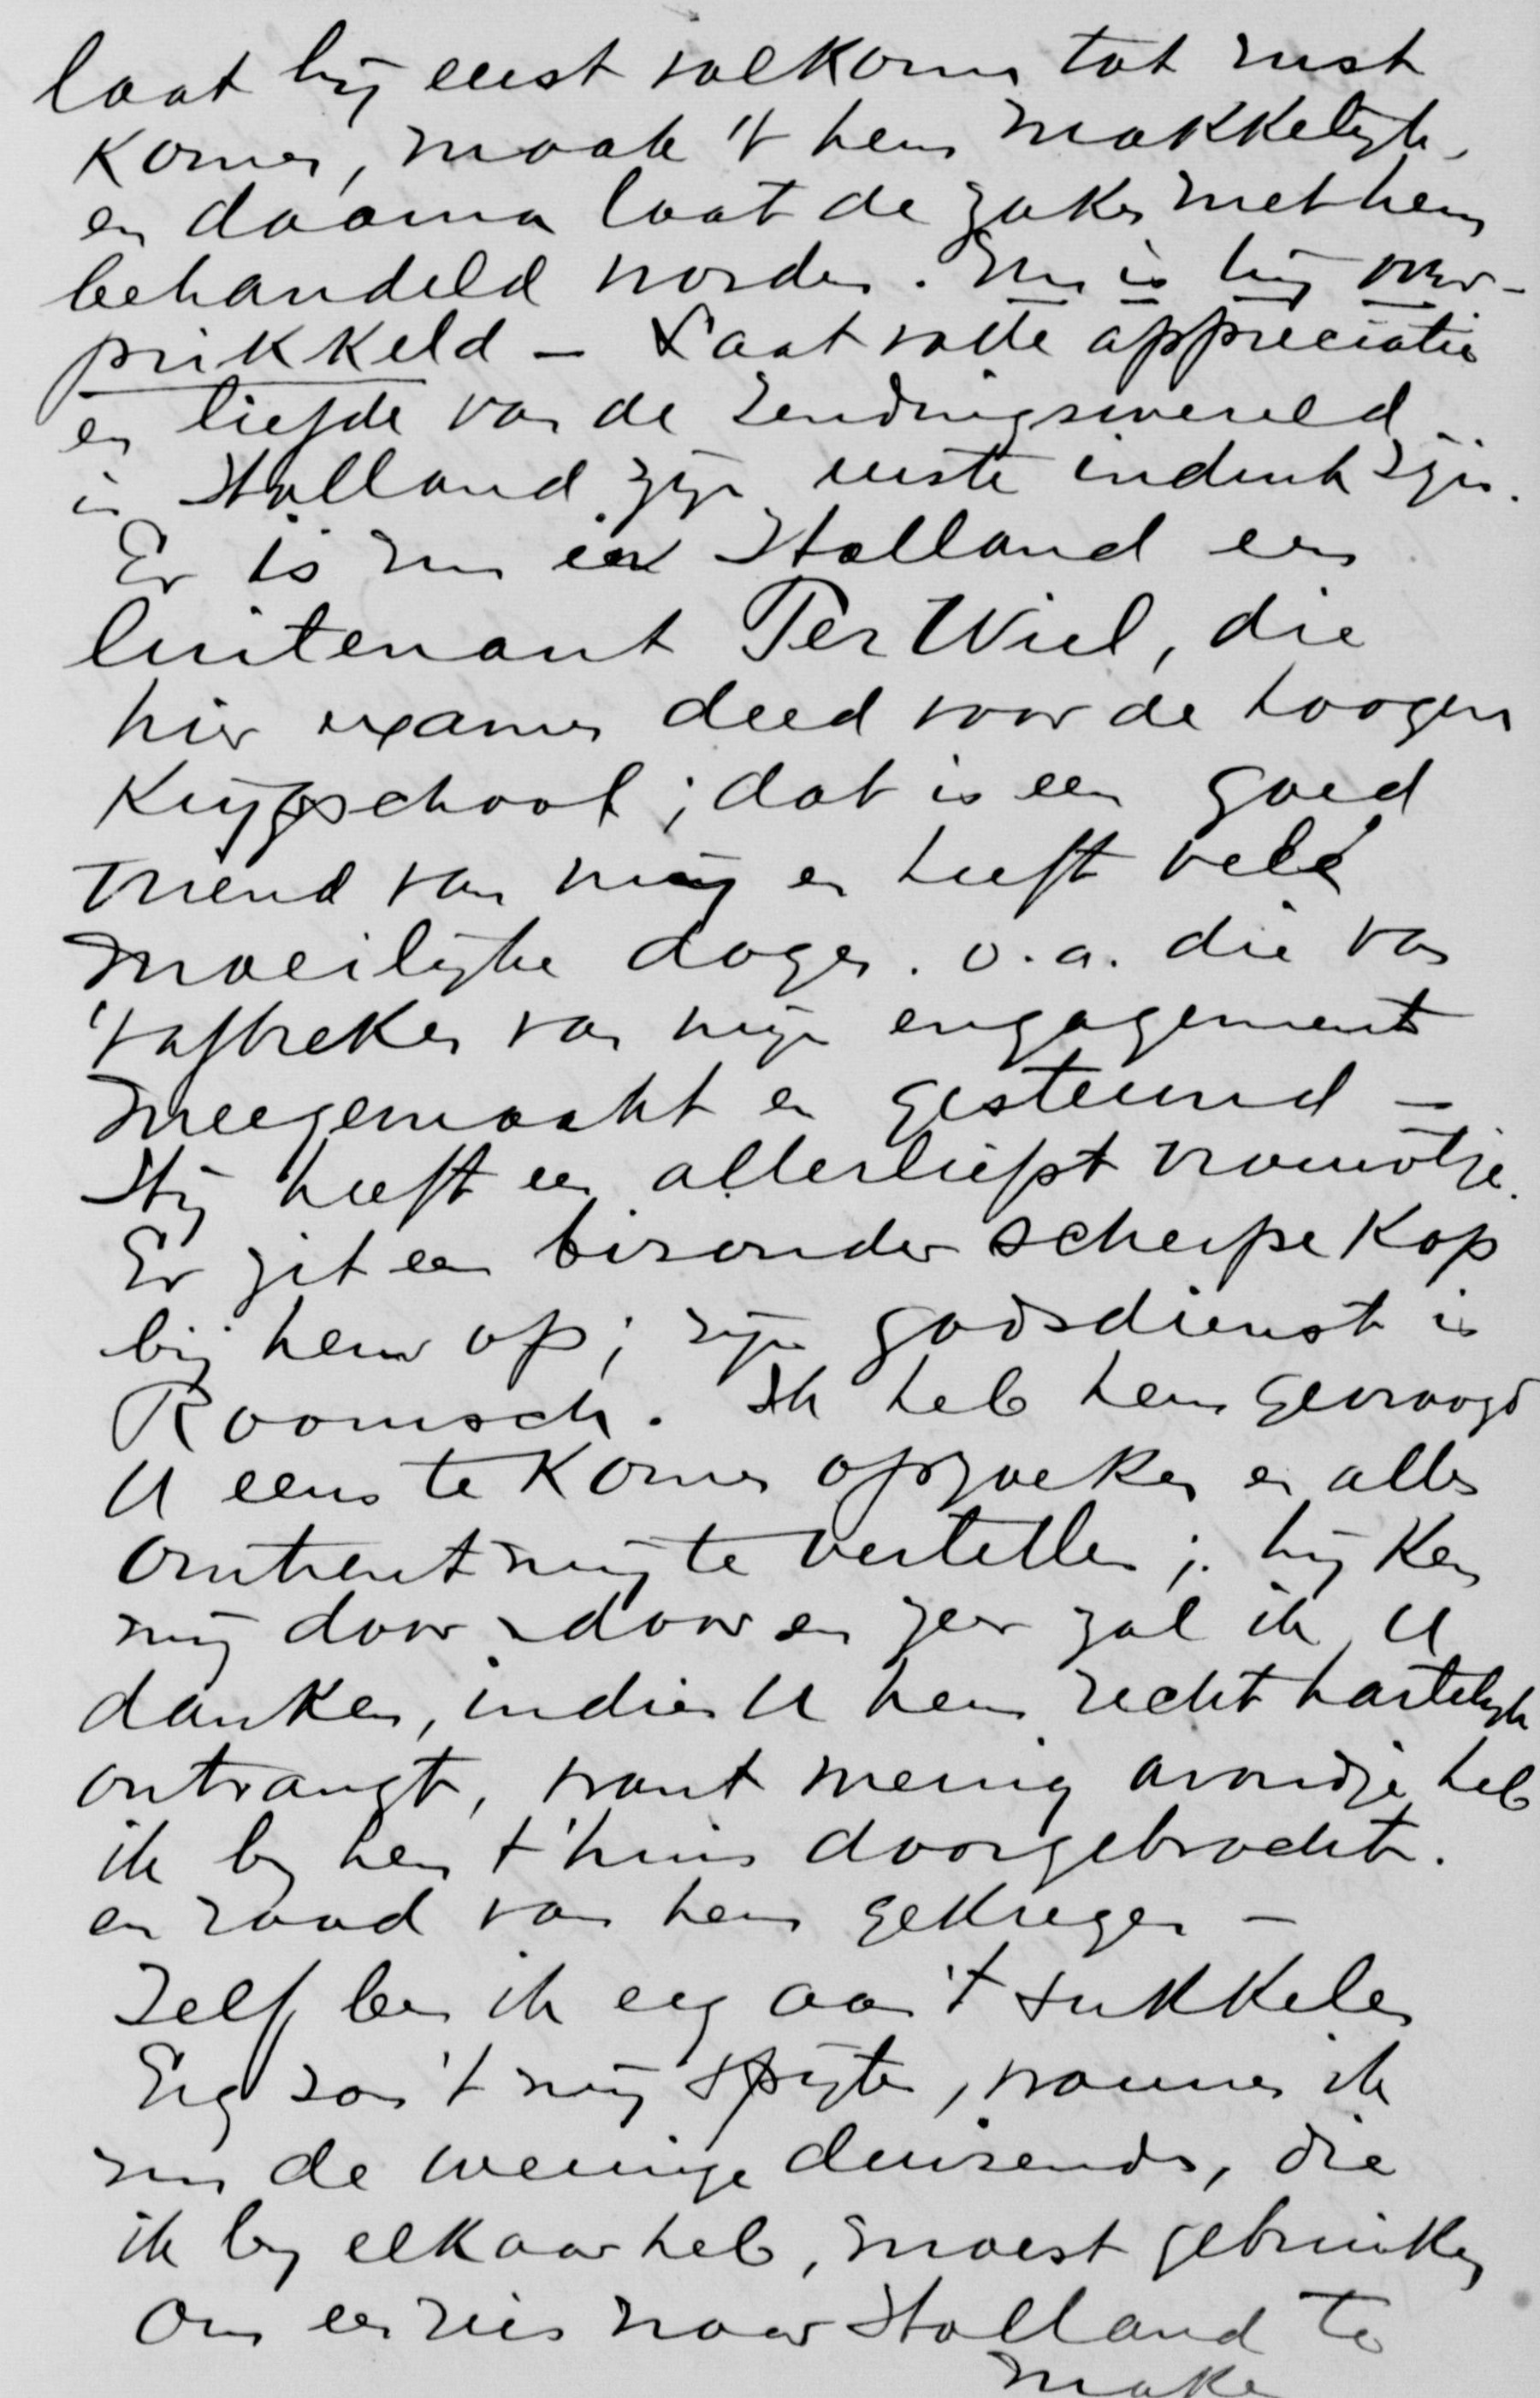 laat hij eerst volkomen tot rust
komen, maak 't hem makkelijk,
en daarna laat de zaken met hem
behandeld worden. Nu is hij over-
prikkeld – Laat volle appreciatie
en liefde van de Zendingswereld
in Holland zijn eerste indruk zijn.
Er is nu in Holland een
luitenant Ter Wiel, die
hier examen deed voor de hoogere
Krijgsschool; dat is een goed
vriend van mij en heeft vele
moeilijke dagen. o.a. die van
't afbreken van mijn engagement
meegemaakt en gesteund –
Hij heeft een allerliefst vrouwtje.
Er zit een bizonder scherpe kop
bij hem op; zijn godsdienst is
Roomsch. Ik heb hem gevraagd
U eens te komen opzoeken en alles
omtrent mij te vertellen; hij ken
mij door en door en zeer zal ik U
danken, indien U hem recht hartelijk
ontvangt, want menig avondje heb
ik bij hem t'huis doorgebracht.
en raad van hem gekregen –
Zelf ben ik erg aan 't sukkelen
Erg zou 't mij spijten, wanneer ik
nu de weinige duizends, die
ik bij elkaar heb, moest gebruiken
om een reis naar Holland te
maken